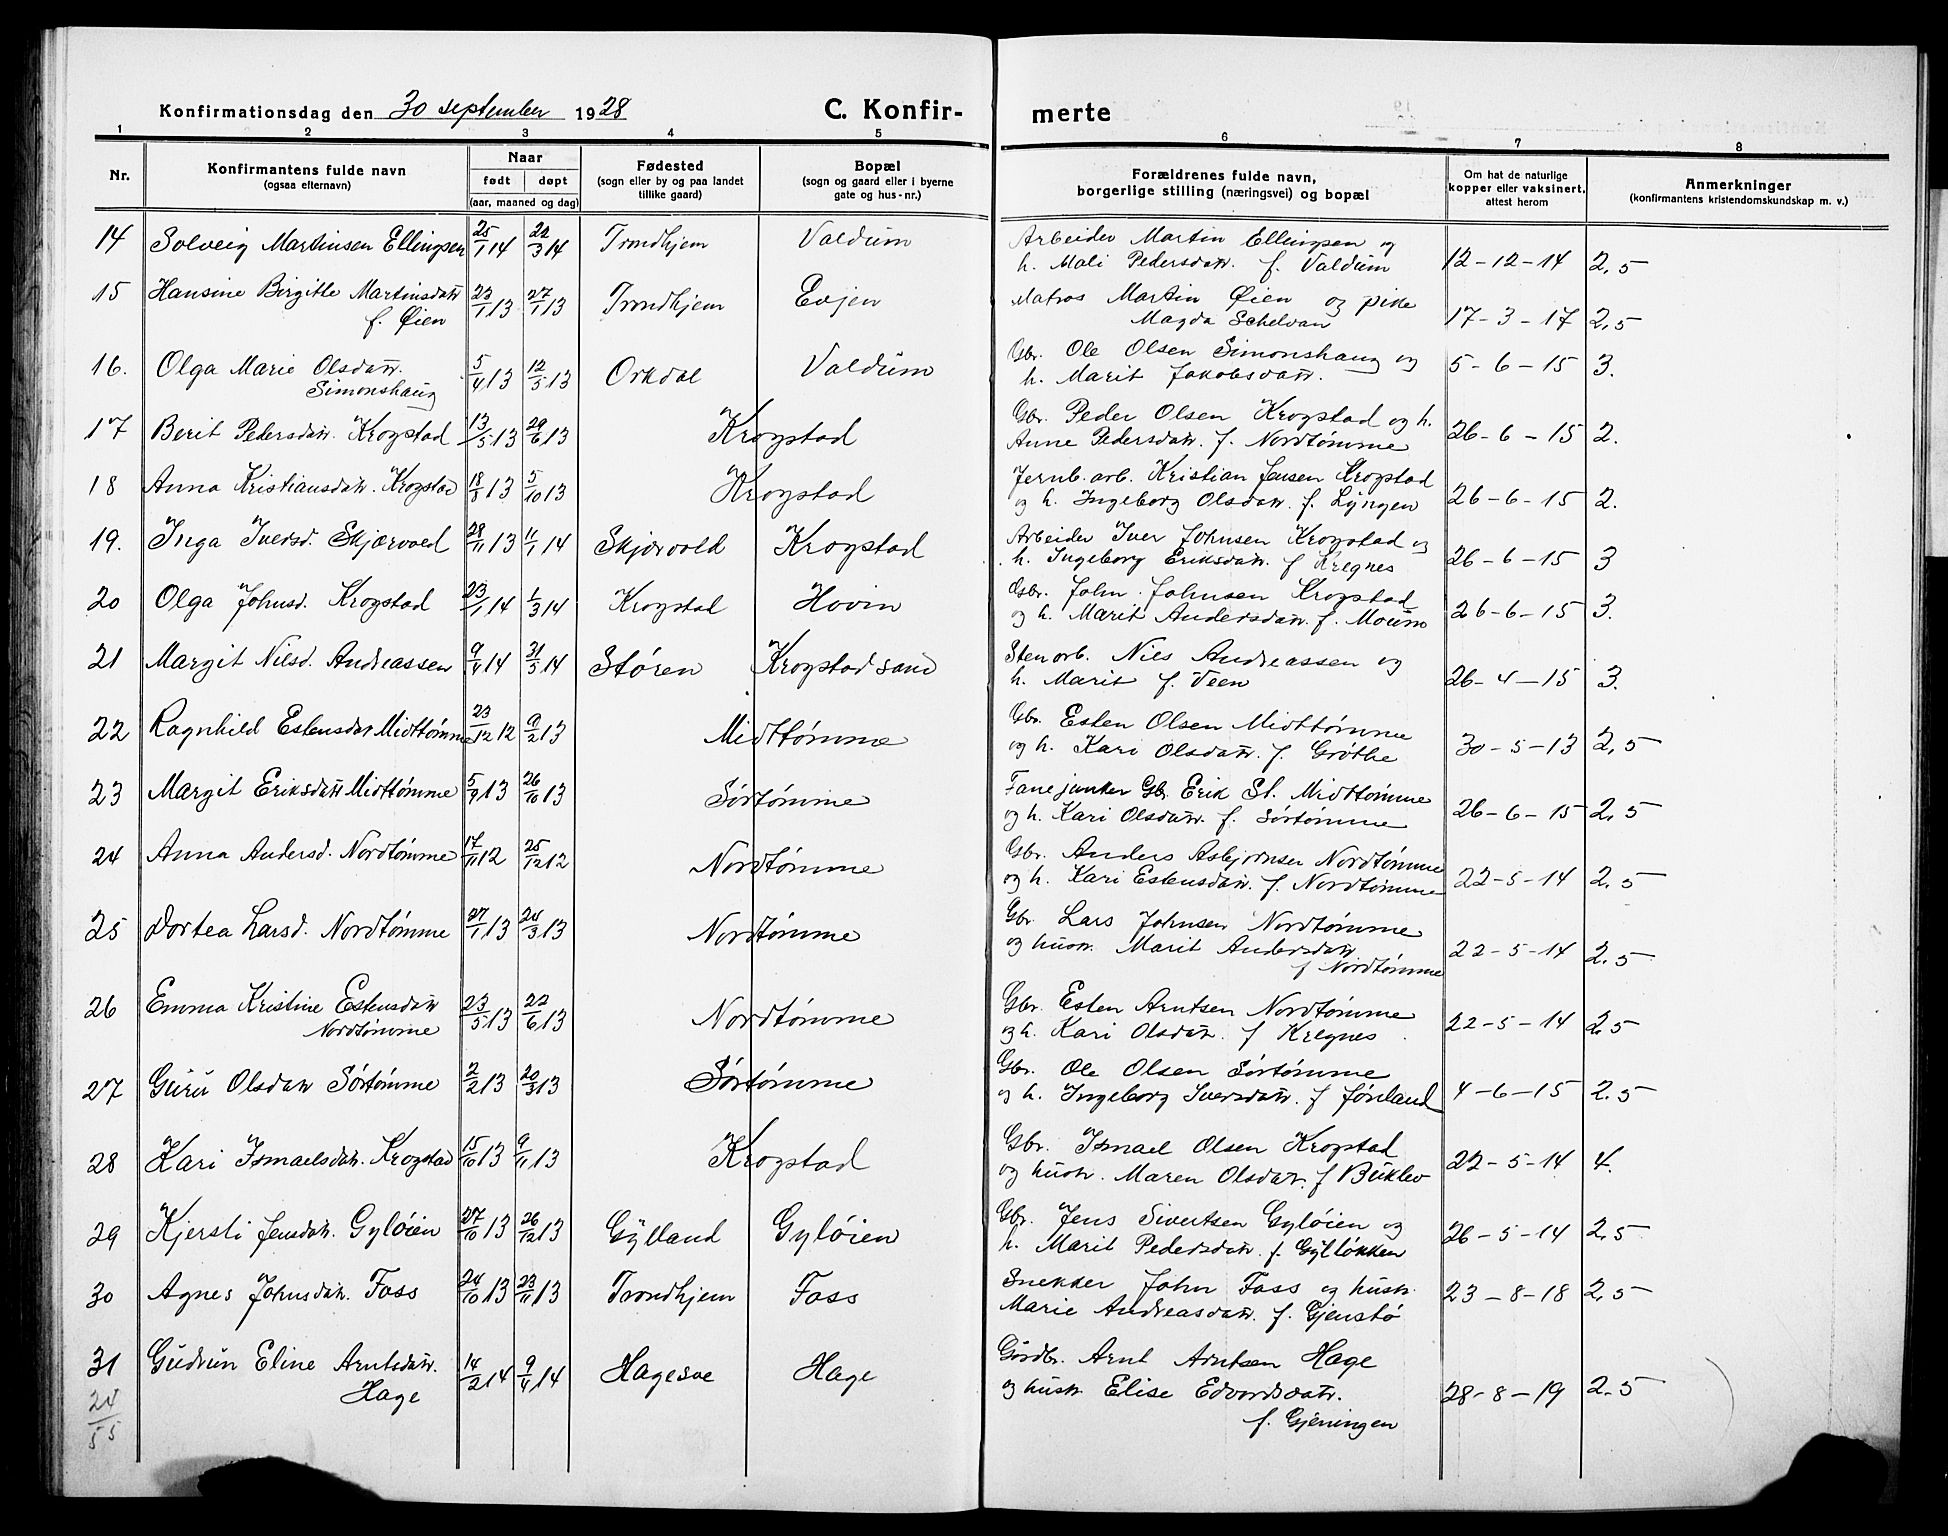 Konfirmationsdag den 30 september 1928 C. Konfir-merte
1 2 3 4 5 6 7 8
Nr. Konfirmantens fulde navn (ogsaa efternavn) Naar født døpt (aar, maaned og dag) Fødested (sogn eller by og paa landet tillike gaard) Bopæl (sogn og gaard eller i byerne gate og hus-nr.) Forældrenes fulde navn, borgerlige stilling (næringsvei) og bopæl Om hat de naturlige kopper eller vaksinert, attest herom Anmerkninger (konfirmantens kristendomskundskap m. v.)
14 Solveig Martinsen Ellingsen 25/1 14 22/3 14 Trondhjem Valdum Arbeider Martin Ellingsen og 12-12-14 2,5
h. Mali Pedersdatr. f. Valdum
15 Hansine Birgitte Martinsdatr 23/1 13 27/1 13 Trondhjem Evjen Matros Martin Øien og pike 17-3-17 2,5
f. Øien Magda Schelvan
16. Olga Marie Olsdatr. 5/4 13 12/5 13 Orkdal Valdum Gbr. Ole Olsen Simonshaug og 5-6-15 3.
Simonshaug h. Marit Jakobsdatr.
17 Berit Pedersdatr. Krogstad 13/5 13 29/6 13 Krogstad Gbr. Peder Olsen Krogstad og h. 26-6-15 2.
Anne Pedersdatr. f. Nordtømme
18 Anna Kristiansdatr. Krogstad 18/5 13 5/10 13 Krogstad Jernb.arb. Kristian Jensen Krogstad 26-6-15 2.
og h. Ingeborg Olsdatr. f. Lyngen
19. Inga Iversd. Skjærvold 28/11 13 11/1 14 Skjærvold Krogstad Arbeider Iver Johnsen Krogstad og 26-6-15 3
h. Ingeborg Eriksdatr. f Kregnes
20 Olga Johnsd. Krogstad 23/1 14 1/3 14 Krogstad Hovin Gbr. John Johnsen Krogstad 26-6-15 3.
og h. Marit Andersdatr. f. Moum
21 Margit Nilsd. Andreassen 9/4 14 31/5 14 Støren Krogstadsand Stenarb. Nils Andreassen og 26-4-15 3.
h. Marit f. Veen
22 Ragnhild Estensdatr Midttømme 23/12 12 9/2 13 Midttømme Gbr. Esten Olsen Midttømme 30-5-13 2,5
og h. Kari Olsdatr. f. Grøthe
23 Margit Eriksdatr Midttømme 5/9 13 26/10 13 Sørtømme Fanejunker Gbr. Erik St. Midttømme 26-6-15 2,5
og h. Kari Olsdatr. f. Sørtømme
24 Anna Andersd. Nordtømme 17/11 12 25/12 12 Nordtømme Gbr. Anders Asbjørnsen Nordtømme 22-5-14 2.5
og h. Kari Estensdatr. f. Nordtømme
25 Dortea Larsd. Nordtømme 27/1 13 24/3 13 Nordtømme Gbr. Lars Johnsen Nordtømme 22-5-14 2.5
og hustr. Marit Andersdatr
f Nordtømme
26 Emma Kristine Estensdatr 23/5 13 22/6 13 Nordtømme Gbr. Esten Arntsen Nordtømme 22-5-14 2.5
Nordtømme og h. Kari Olsdatr. f Kregnes
27 Guru Olsdatr Sørtømme 2/2 13 20/3 13 Sørtømme Gbr. Ole Olsen Sørtømme 4-6-15 2.5
og h. Ingeborg Iversdatr. f
28 Kari Ismaelsdatr. Krogstad 15/10 13 9/11 13 Krogstad Gbr. Ismael Olsen Krogstad 22-5-14 4.
og hustr. Maren Olsdatr. f Buklev
29 Kjersti Jensdatr. Gyløien 27/10 13 26/12 13 Gylland Gyløien Gbr. Jens Sivertsen Gyløien og 26-5-14 2.5
h. Marit Pedersdatr. f. Gylløkken
30 Agnes Johnsdatr. Foss 24/10 13 23/11 13 Trondhjem Foss Snekker John Foss og hustr. 23-8-18 2,5
Marie Andreasdatr. f. Gjenstø
31 Gudrun Eline Arntsdatr. 14/2 14 9/4 14 Hagesve Hage Gårdbr. Arnt Arntsen Hage 28-8-19 2.5
Hage og hustr. Elise Edvardsdatr.
24/55 f. Gjeningen